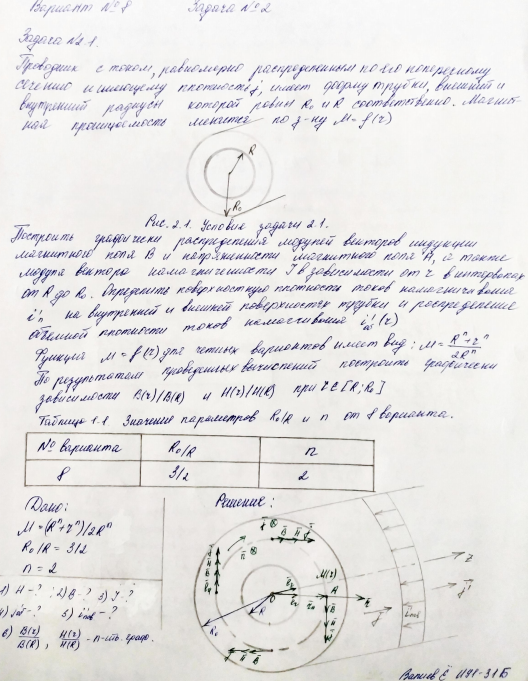 Вариант № 8 Задача № 2
Задача № 2.1.
Проводник с током, равномерно распределенным по его поперечному
сечению и имеющему плотность j, имеет форму трубки, внешний и
внутренний радиусы которой равны R₀ и R соответственно. Магнит-
ная проницаемость меняется по з-ну M = f(r)
R
R₀
Рис. 2.1. Условие задачи 2.1.
Построить графически распределения модулей векторов индукции
магнитного поля B и напряженности магнитного поля H, а также
модуля вектора намагниченности J в зависимости от r в интервале
от R до R₀. Определить поверхностную плотность токов намагничивания
i'п на внутренней и внешней поверхностях трубки и распределение
объемной плотности токов намагничивания i'об(r)
Функция M = f(r) для четных вариантов имеет вид: M = (Rⁿ+rⁿ)/2Rⁿ
По результатам проведенных вычислений построить графически
зависимости B(r)/B(R) и H(r)/H(R) при r∈[R;R₀]
Таблица 1.1 Значение параметров R₀/R и n от 8 варианта.
№ варианта R₀/R n
8 3/2 2
Дано: Решение:
M = (Rⁿ+rⁿ)/2Rⁿ
R₀/R = 3/2
n = 2
1) H-? ; 2) B-? 3) J-?
6) B(r)/B(R), H(r)/H(R)
M(r)
A
O
R
R₀
ИУ1-31Б